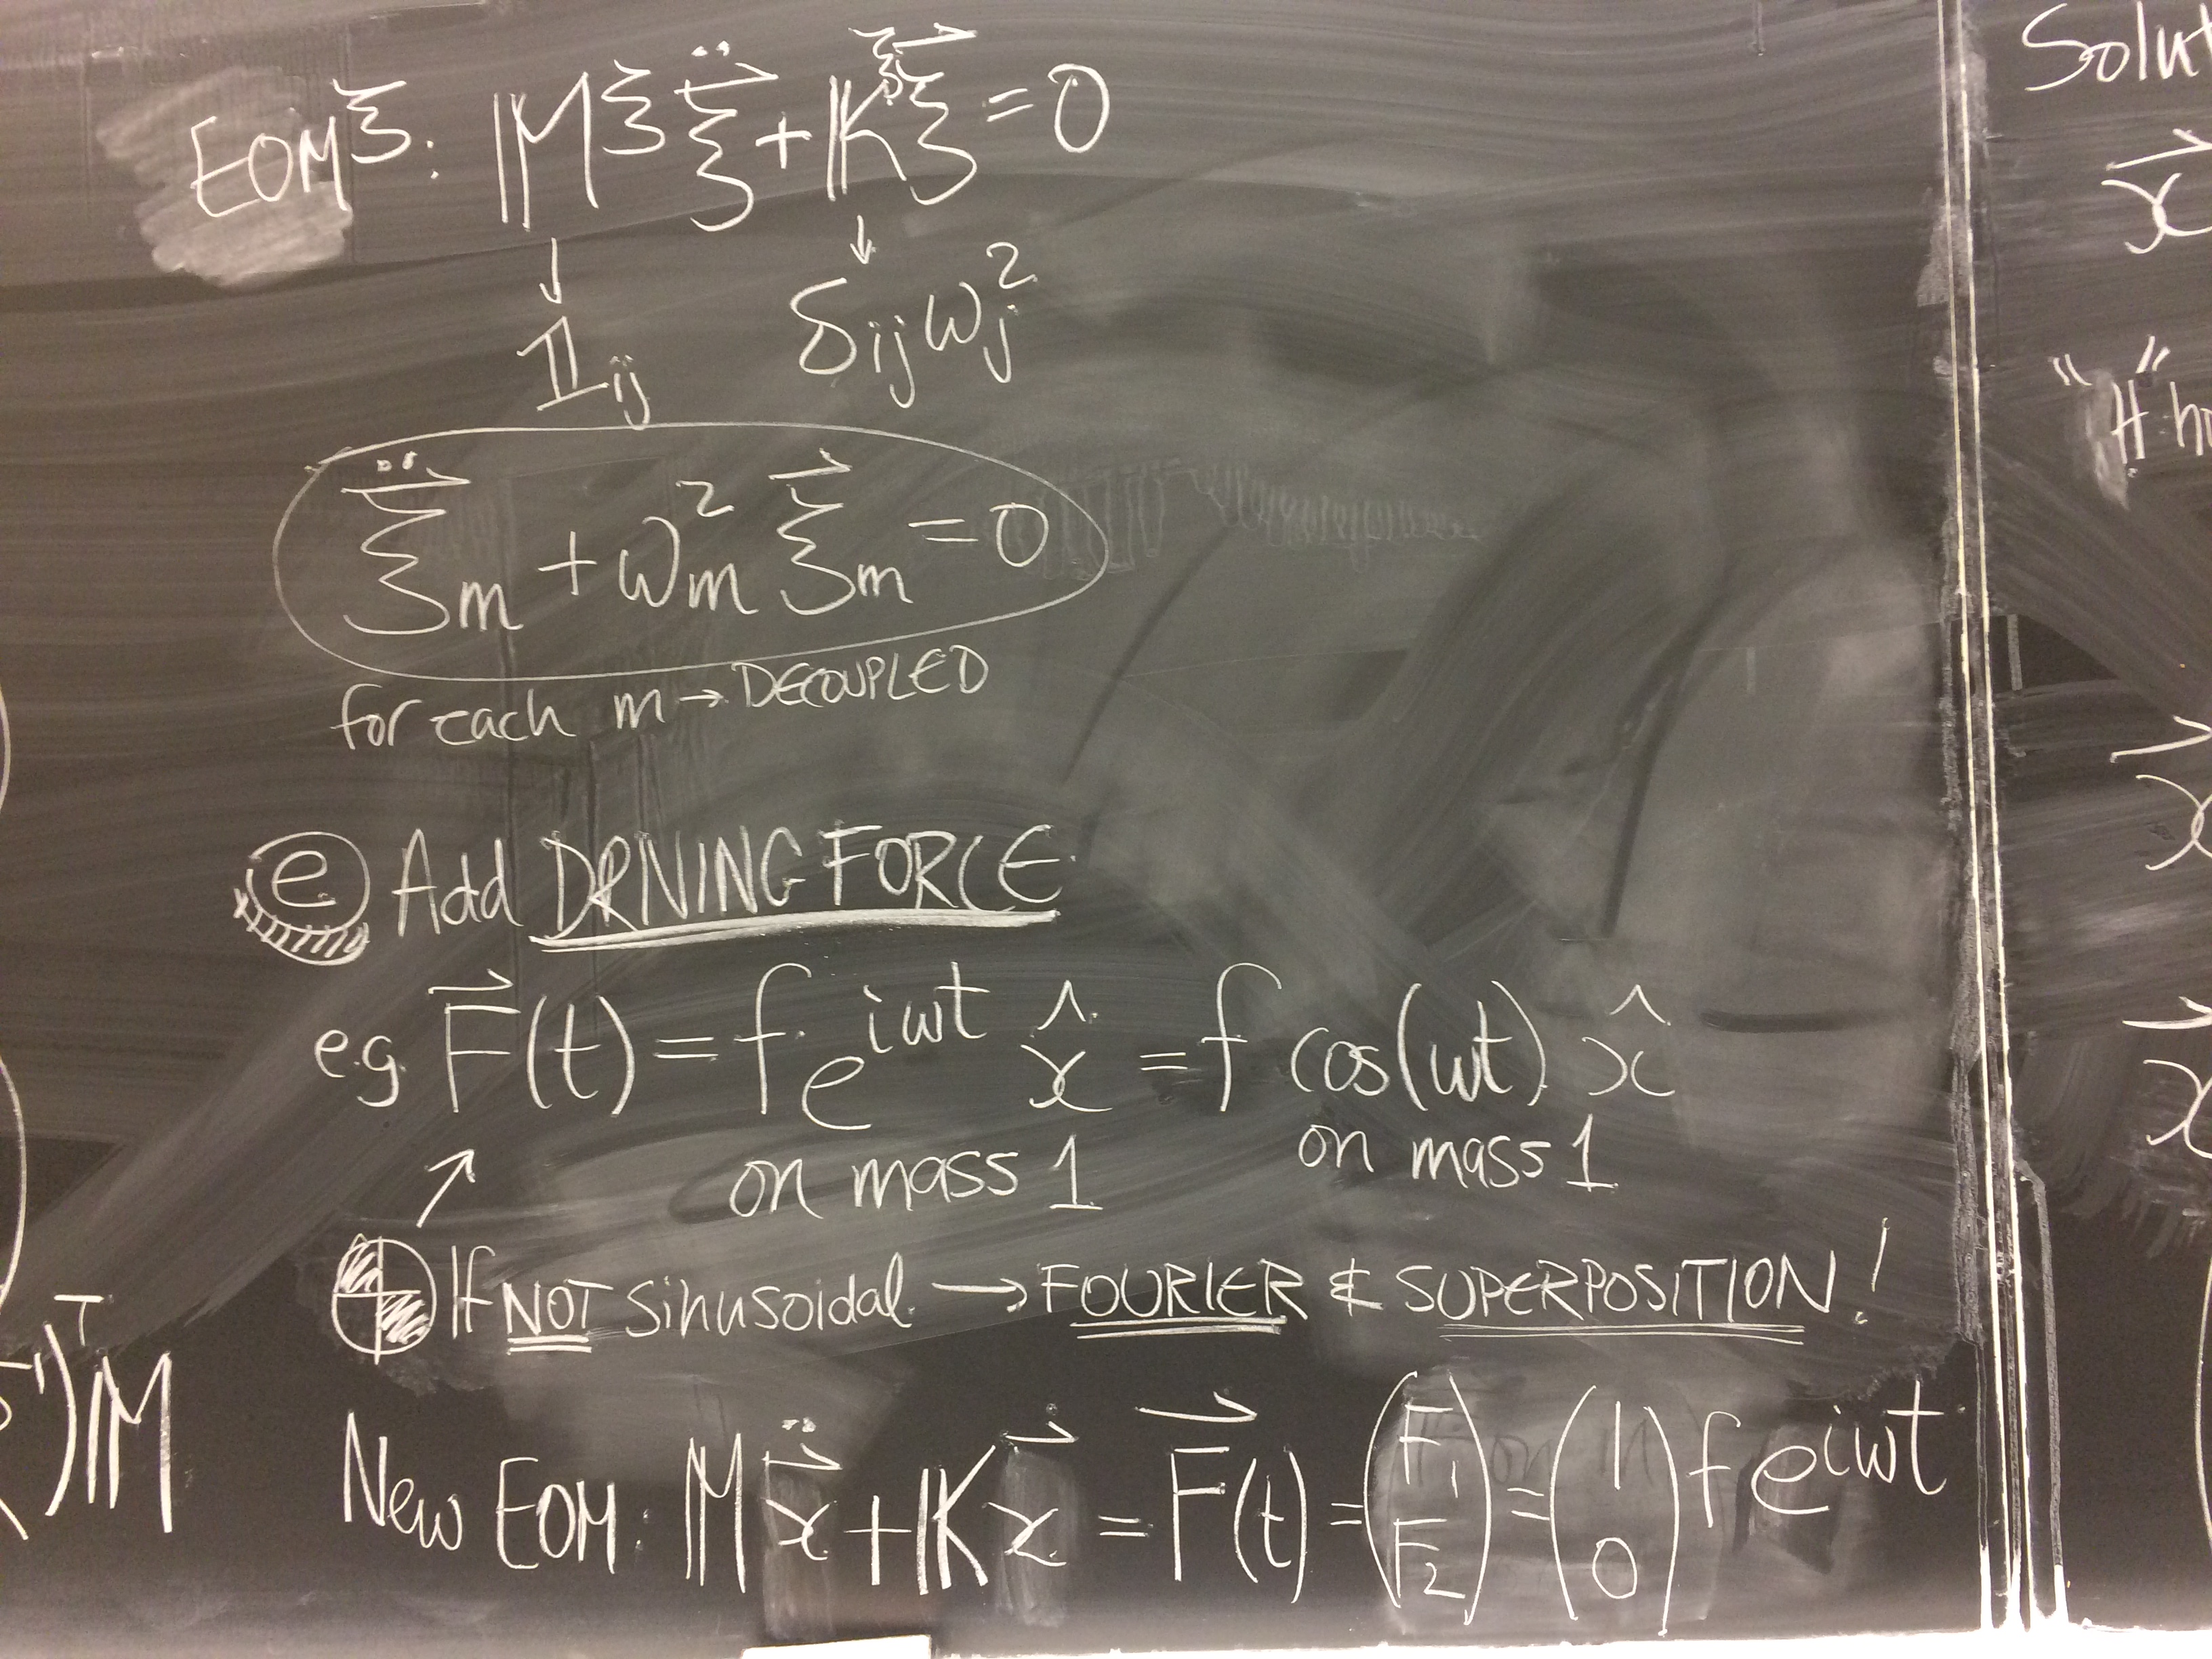 EOM^ξ: 𝕄^ξ ξ⃗̈ + 𝕂^ξ⃗ ξ⃗ = 0
↓ ↓
𝟙ij δij ωj²
ξ⃗̈m + ωm² ξ⃗m = 0
for each m → DECOUPLED
ⓔ Add DRIVING FORCE
e.g. F⃗(t) = f e^{iωt} x̂ = f cos(ωt) x̂
↗ on mass 1 on mass 1
⊕ If NOT sinusoidal → FOURIER & SUPERPOSITION!
New EOM: 𝕄 x⃗̈ + 𝕂 x⃗ = F⃗(t) = (F₁ F₂) = (1 0) f e^{iωt}
)ᵀ 𝕄
x⃗
x⃗
x⃗